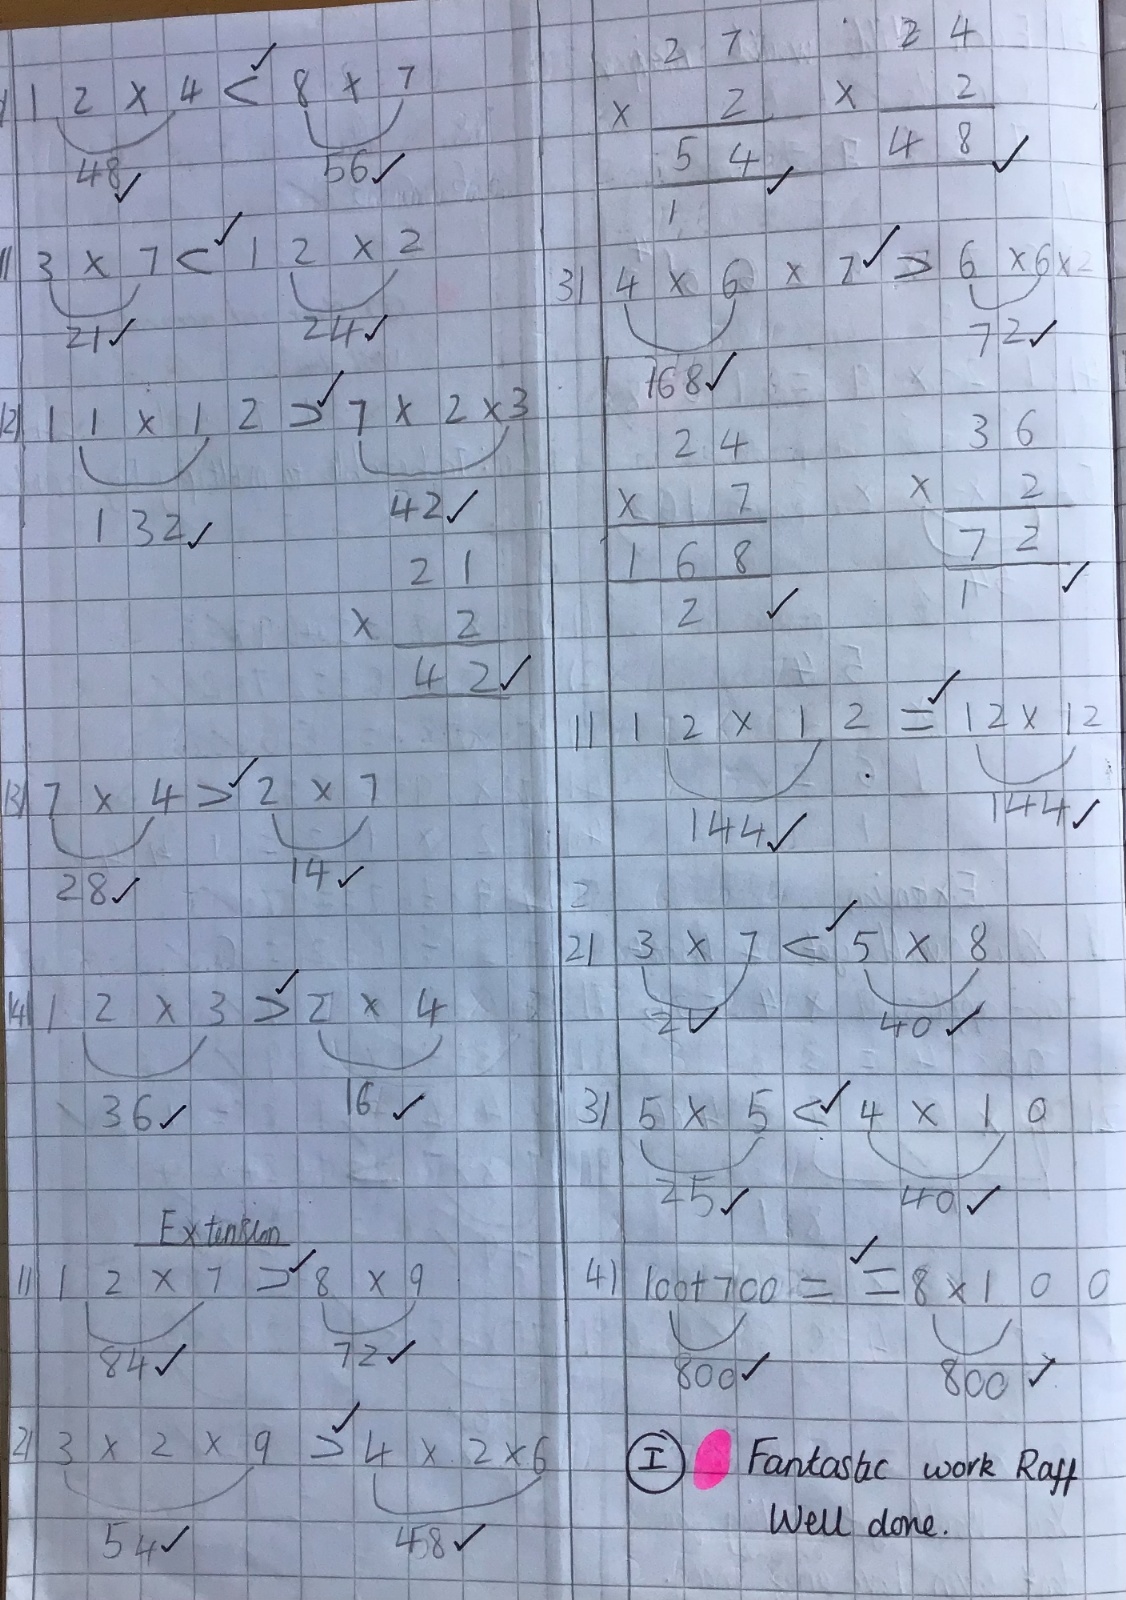 1 2 x 4 < 8 x 7
48 56
11) 3 x 7 < 1 2 x 2
21 24
12) 1 1 x 1 2 > 7 x 2 x 3
132 42
2 1
x 2
4 2
13) 7 x 4 > 2 x 7
28 14
14) 1 2 x 3 > 2 x 4
36 16
Extension
1) 1 2 x 7 > 8 x 9
84 72
2) 3 x 2 x 9 > 4 x 2 x 6
54 48
2 7 2 4
x 2 x 2
5 4 4 8
1
3) 4 x 6 x 7 > 6 x 6 x 2
168 72
2 4 3 6
x 7 x 2
1 6 8 7 2
2 1
1) 1 2 x 1 2 = 12 x 12
144 144
2) 3 x 7 < 5 x 8
21 40
3) 5 x 5 < 4 x 1 0
25 40
4) 100+700 = = 8 x 1 0 0
800 800
I Fantastic work Raff
Well done.